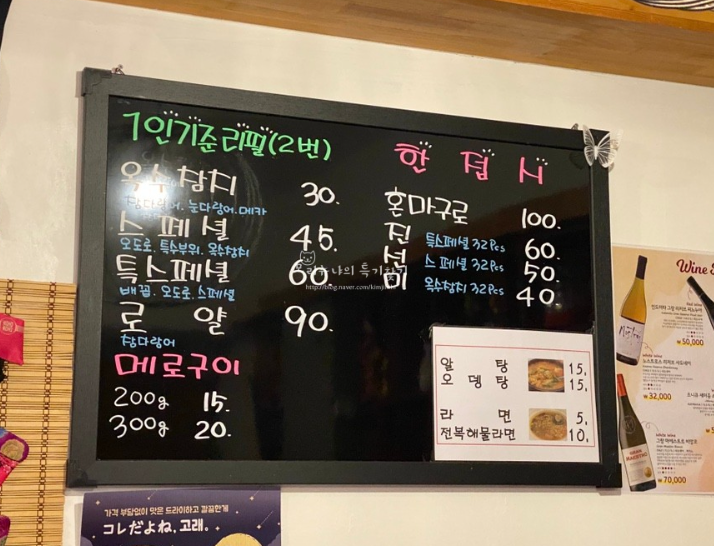 1인기준 리필(2번)
옥수참치 30.
참다랑어. 눈다랑어. 메카
스페셜 45.
오도로. 특수부위. 옥수참치
특스페셜 60.
배꼽. 오도로. 스페셜
로얄 90.
참다랑어
메로구이
200g 15.
300g 20.
한접시
혼마구로 100.
진 특스페셜 32Pcs 60.
선 스페셜 32Pcs 50.
미 옥수참치 32Pcs 40.
http://blog.naver.com/
알탕 15,
오뎅탕 15,
라면 5,
전복해물라면 10,
Wine
₩50,000
₩32,000
₩70,000
가격 부담없이 맛은 드라이하고 깔끔한게
コレだよね、고래。